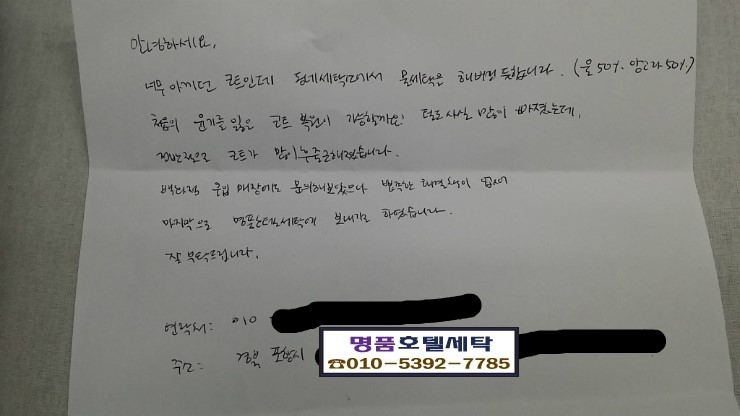 안녕하세요.
너무 아끼던 코트인데 동네세탁소에서 물세탁을 해버린 듯합니다. (울50%. 앙고라50%)
처음의 윤기를 잃은 코트 복원이 가능할까요? 털도 사실 많이 빠졌는데,
전반적으로 코트가 많이 후줄근해졌습니다.
백화점 구입 매장에도 문의해보았으나 뾰족한 해결책이 없어
마지막으로 명품호텔세탁에 보내기로 하였습니다.
잘 부탁드립니다.
연락처: 010
주소: 경북 포항시
명품호텔세탁
☎010-5392-7785